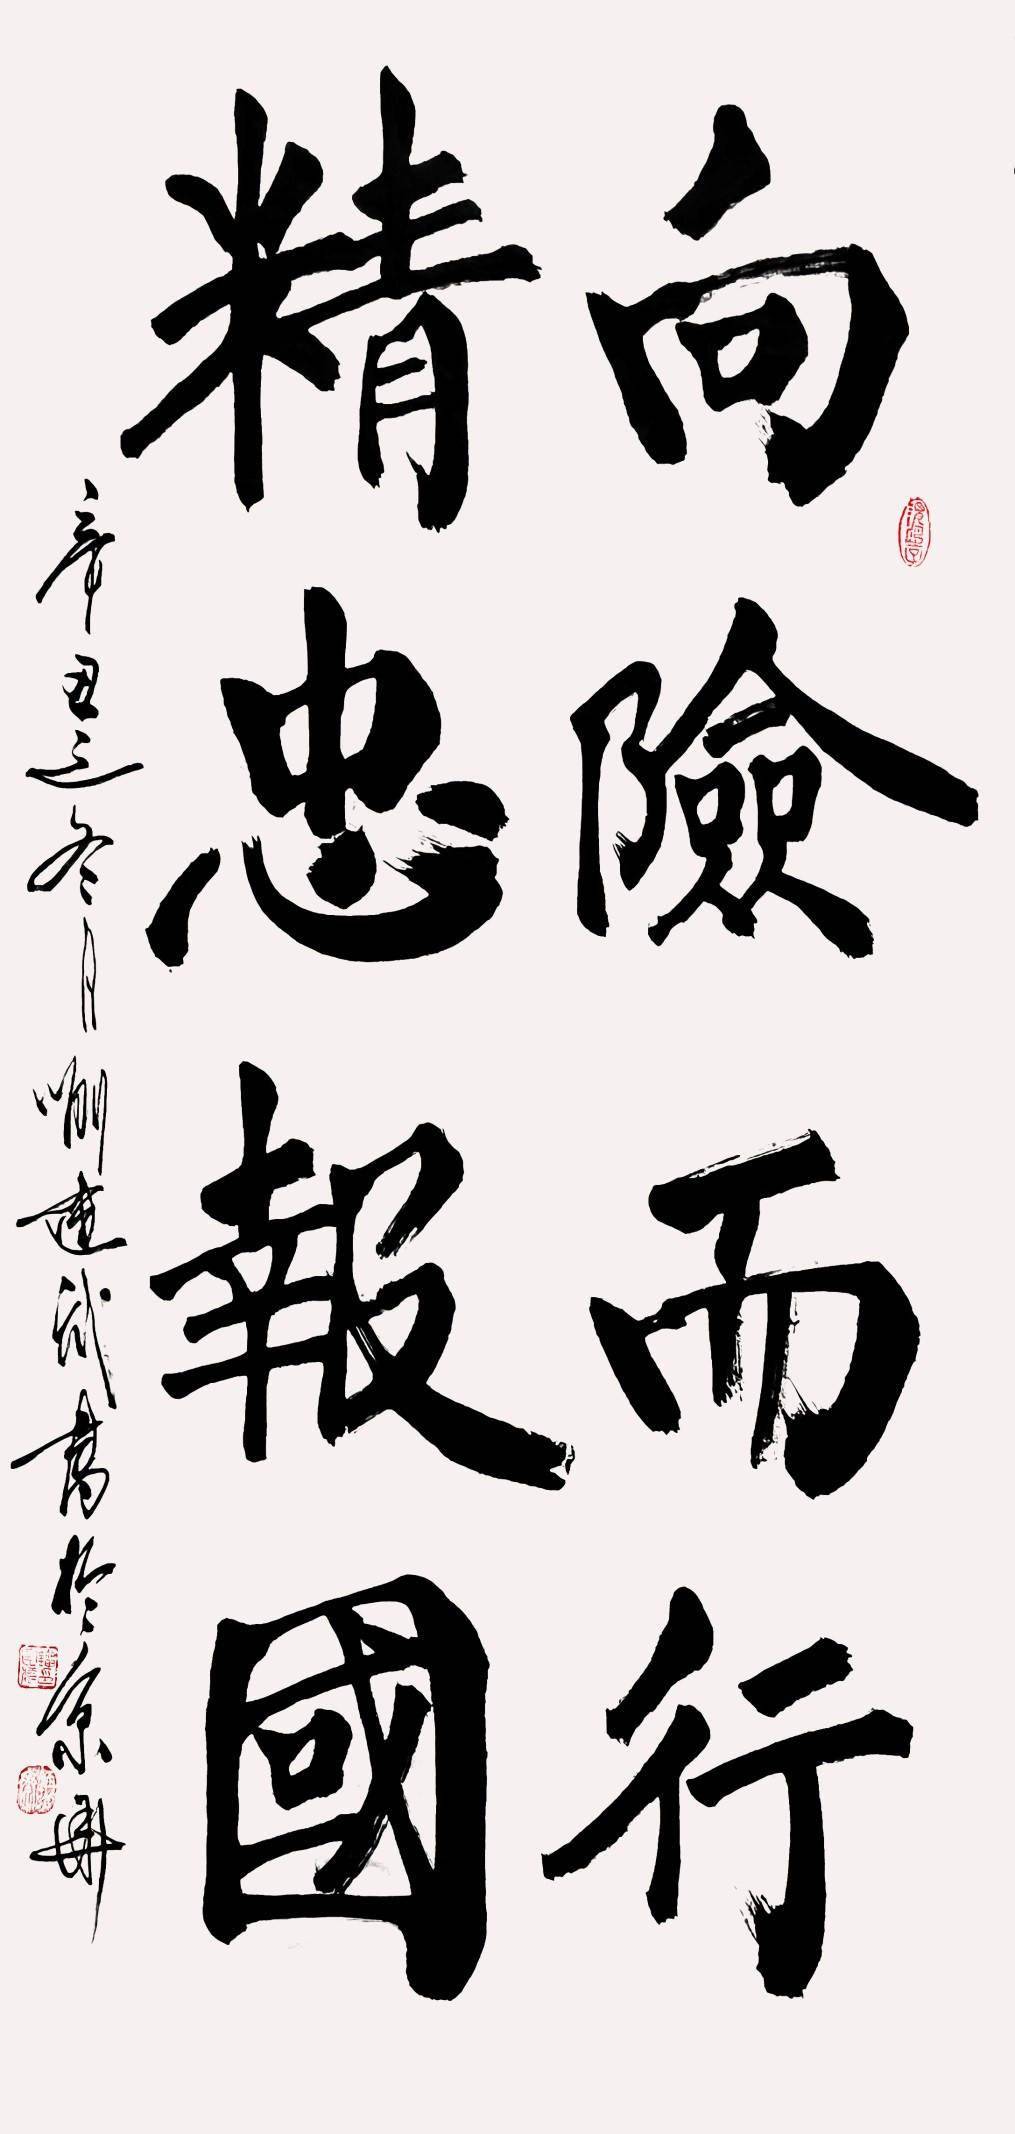 向險而行
精忠報國
辛丑之冬月 建武書於京華